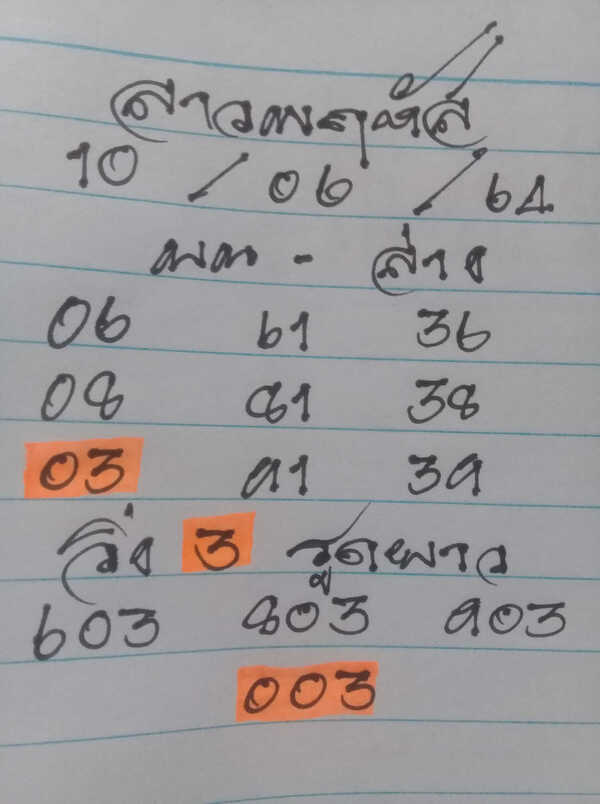 ลาวพฤหัส
10 / 06 / 64
บน - ล่าง
06 61 36
08 81 38
03 91 39
วิ่ง 3 รูดพาว
603 803 903
003